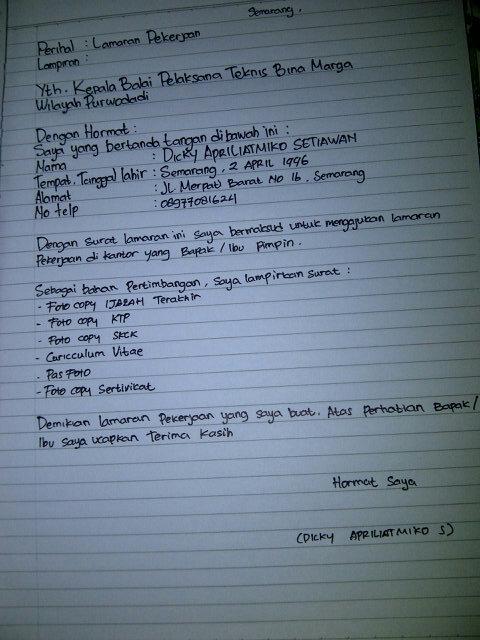 Semarang,
Perihal : Lamaran Pekerjaan
Lampiran :
Yth. Kepala Balai Pelaksana Teknis Bina Marga
Wilayah Purwodadi
Dengan Hormat :
Saya yang bertanda tangan dibawah ini :
Nama : DICKY APRILIATMIKO SETIAWAN
Tempat, Tanggal lahir : Semarang, 2 APRIL 1996
Alamat : JL Merpati Barat No 16. Semarang
No telp : 08977081624
Dengan surat lamaran ini saya bermaksud untuk menggajukan lamaran
Pekerjaan di kantor yang Bapak / Ibu Pimpin.
Sebagai bahan Pertimbangan, Saya lampirkan surat :
- Foto copy IJAZAH Terakhir
- Foto copy KTP
- Foto copy SKCK
- Cariculum Vitae
- Pas Foto
- Foto copy Sertivikat
Demikian lamaran Pekerjaan yang saya buat. Atas Perhatian Bapak /
Ibu saya ucapkan Terima Kasih
Hormat Saya
(DICKY APRILIATMIKO S)